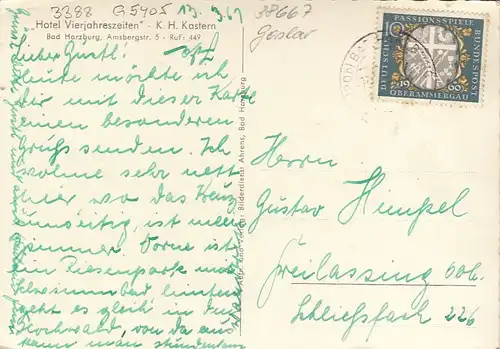 3388 G5905 13.3.69
38667
Goslar
"Hotel Vierjahreszeiten" - K. H. Kastern
Bad Harzburg, Amsbergstr. 5 - Ruf: 449
Lieber Gustl!
Heute möchte ich
Dir mit dieser Karte
einen besonderen
Gruss senden. Ich
wohne sehr nett
hier wo das Kreuz
umseitig, ist mein
Zimmer. Vorne ist
ein Riesenpark mit
Schwimmbad hinten
geht es gleich in den
Hochwald, von da aus
kann man stundenlang
Bilderdienst Ahrens, Bad Harzburg
PASSIONSSPIELE
DEUTSCHE
BUNDESPOST
10
1960
OBERAMMERGAU
Herrn
Gustav Himpsel
Freilassing Obb.
Schließfach 226